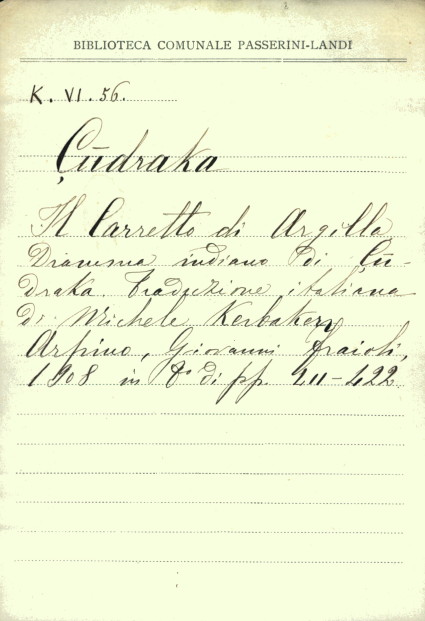 BIBLIOTECA COMUNALE PASSERINI-LANDI
K. VI. 56.
Çūdraka
Il Carretto di Argilla
Dramma indiano di Çū-
draka. Traduzione italiana
di Michele Kerbaker
Arpino, Giovanni Fraioli,
1908 in 8° di pp. XII-422